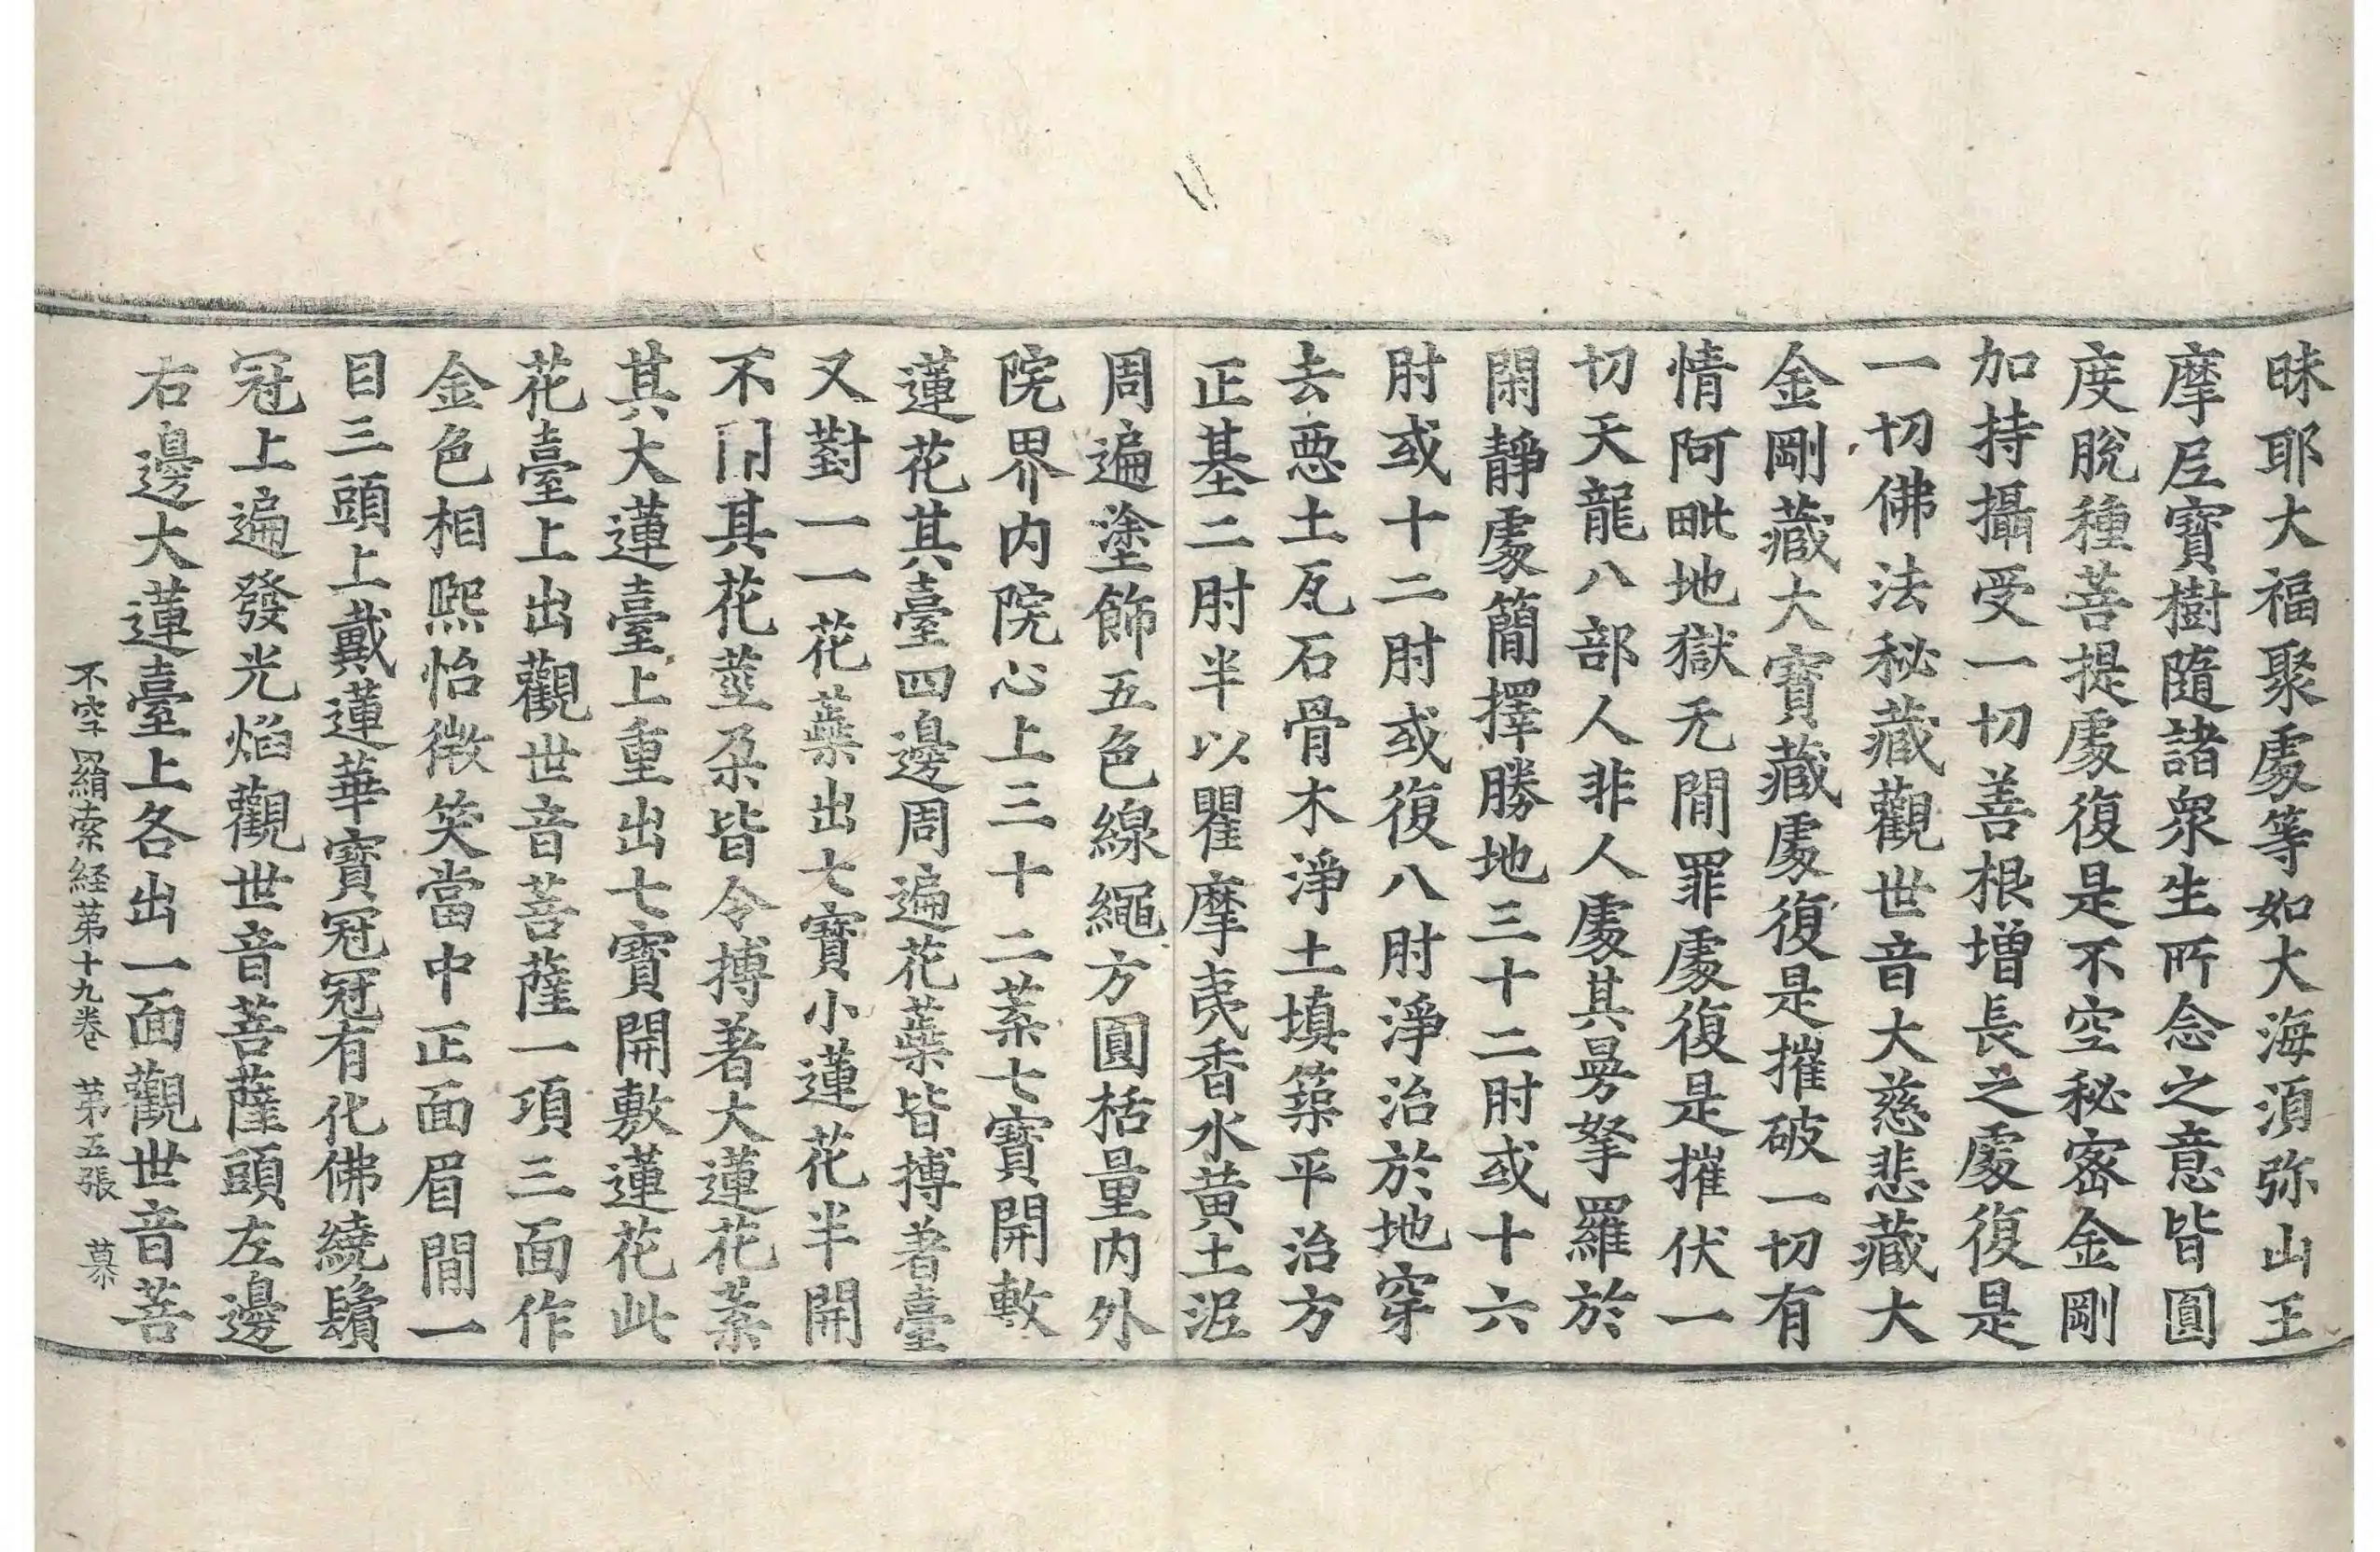 昧耶大福聚處等如大海湏弥山王
摩𡰱寶樹隨諸衆生所念之意皆圓
度脫種菩提處復是不空秘密金剛
加持攝受一切善根增長之處復是
一切佛法秘藏觀世音大慈悲藏大
金剛藏大寶藏處復是摧破一切有
情阿毗地獄无閒罪處復是摧伏一
切天龍八部人非人處其曼拏羅於
閑靜處簡擇勝地三十二肘或十六
肘或十二肘或復八肘淨治於地穿
去惡土瓦石骨木淨土填築平治方
正基二肘半以瞿摩夷香水黃土泥
周遍塗飾五色線繩方圓栝量內外
院界內院心上三十二葉七寶開敷
蓮花其臺四邊周遍花蘂皆摶著臺
又對一一花蘂出七寶小蓮花半開
不開其花莖朶皆令摶著大蓮花葉
其大蓮臺上重出七寶開敷蓮花此
花臺上出觀世音菩薩一項三面作
金色相熙怡微笑當中正面眉閒一
目三頭上戴蓮華寶冠冠有化佛繞鬚
冠上遍發光焰觀世音菩薩頭左邊
右邊大蓮臺上各出一面觀世音菩
不空羂索経第十九卷 第五張 慕